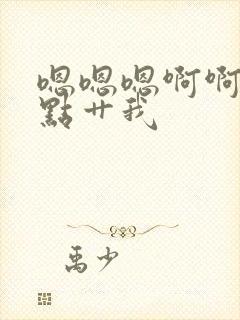 嗯嗯嗯啊啊
點艹我
禹少